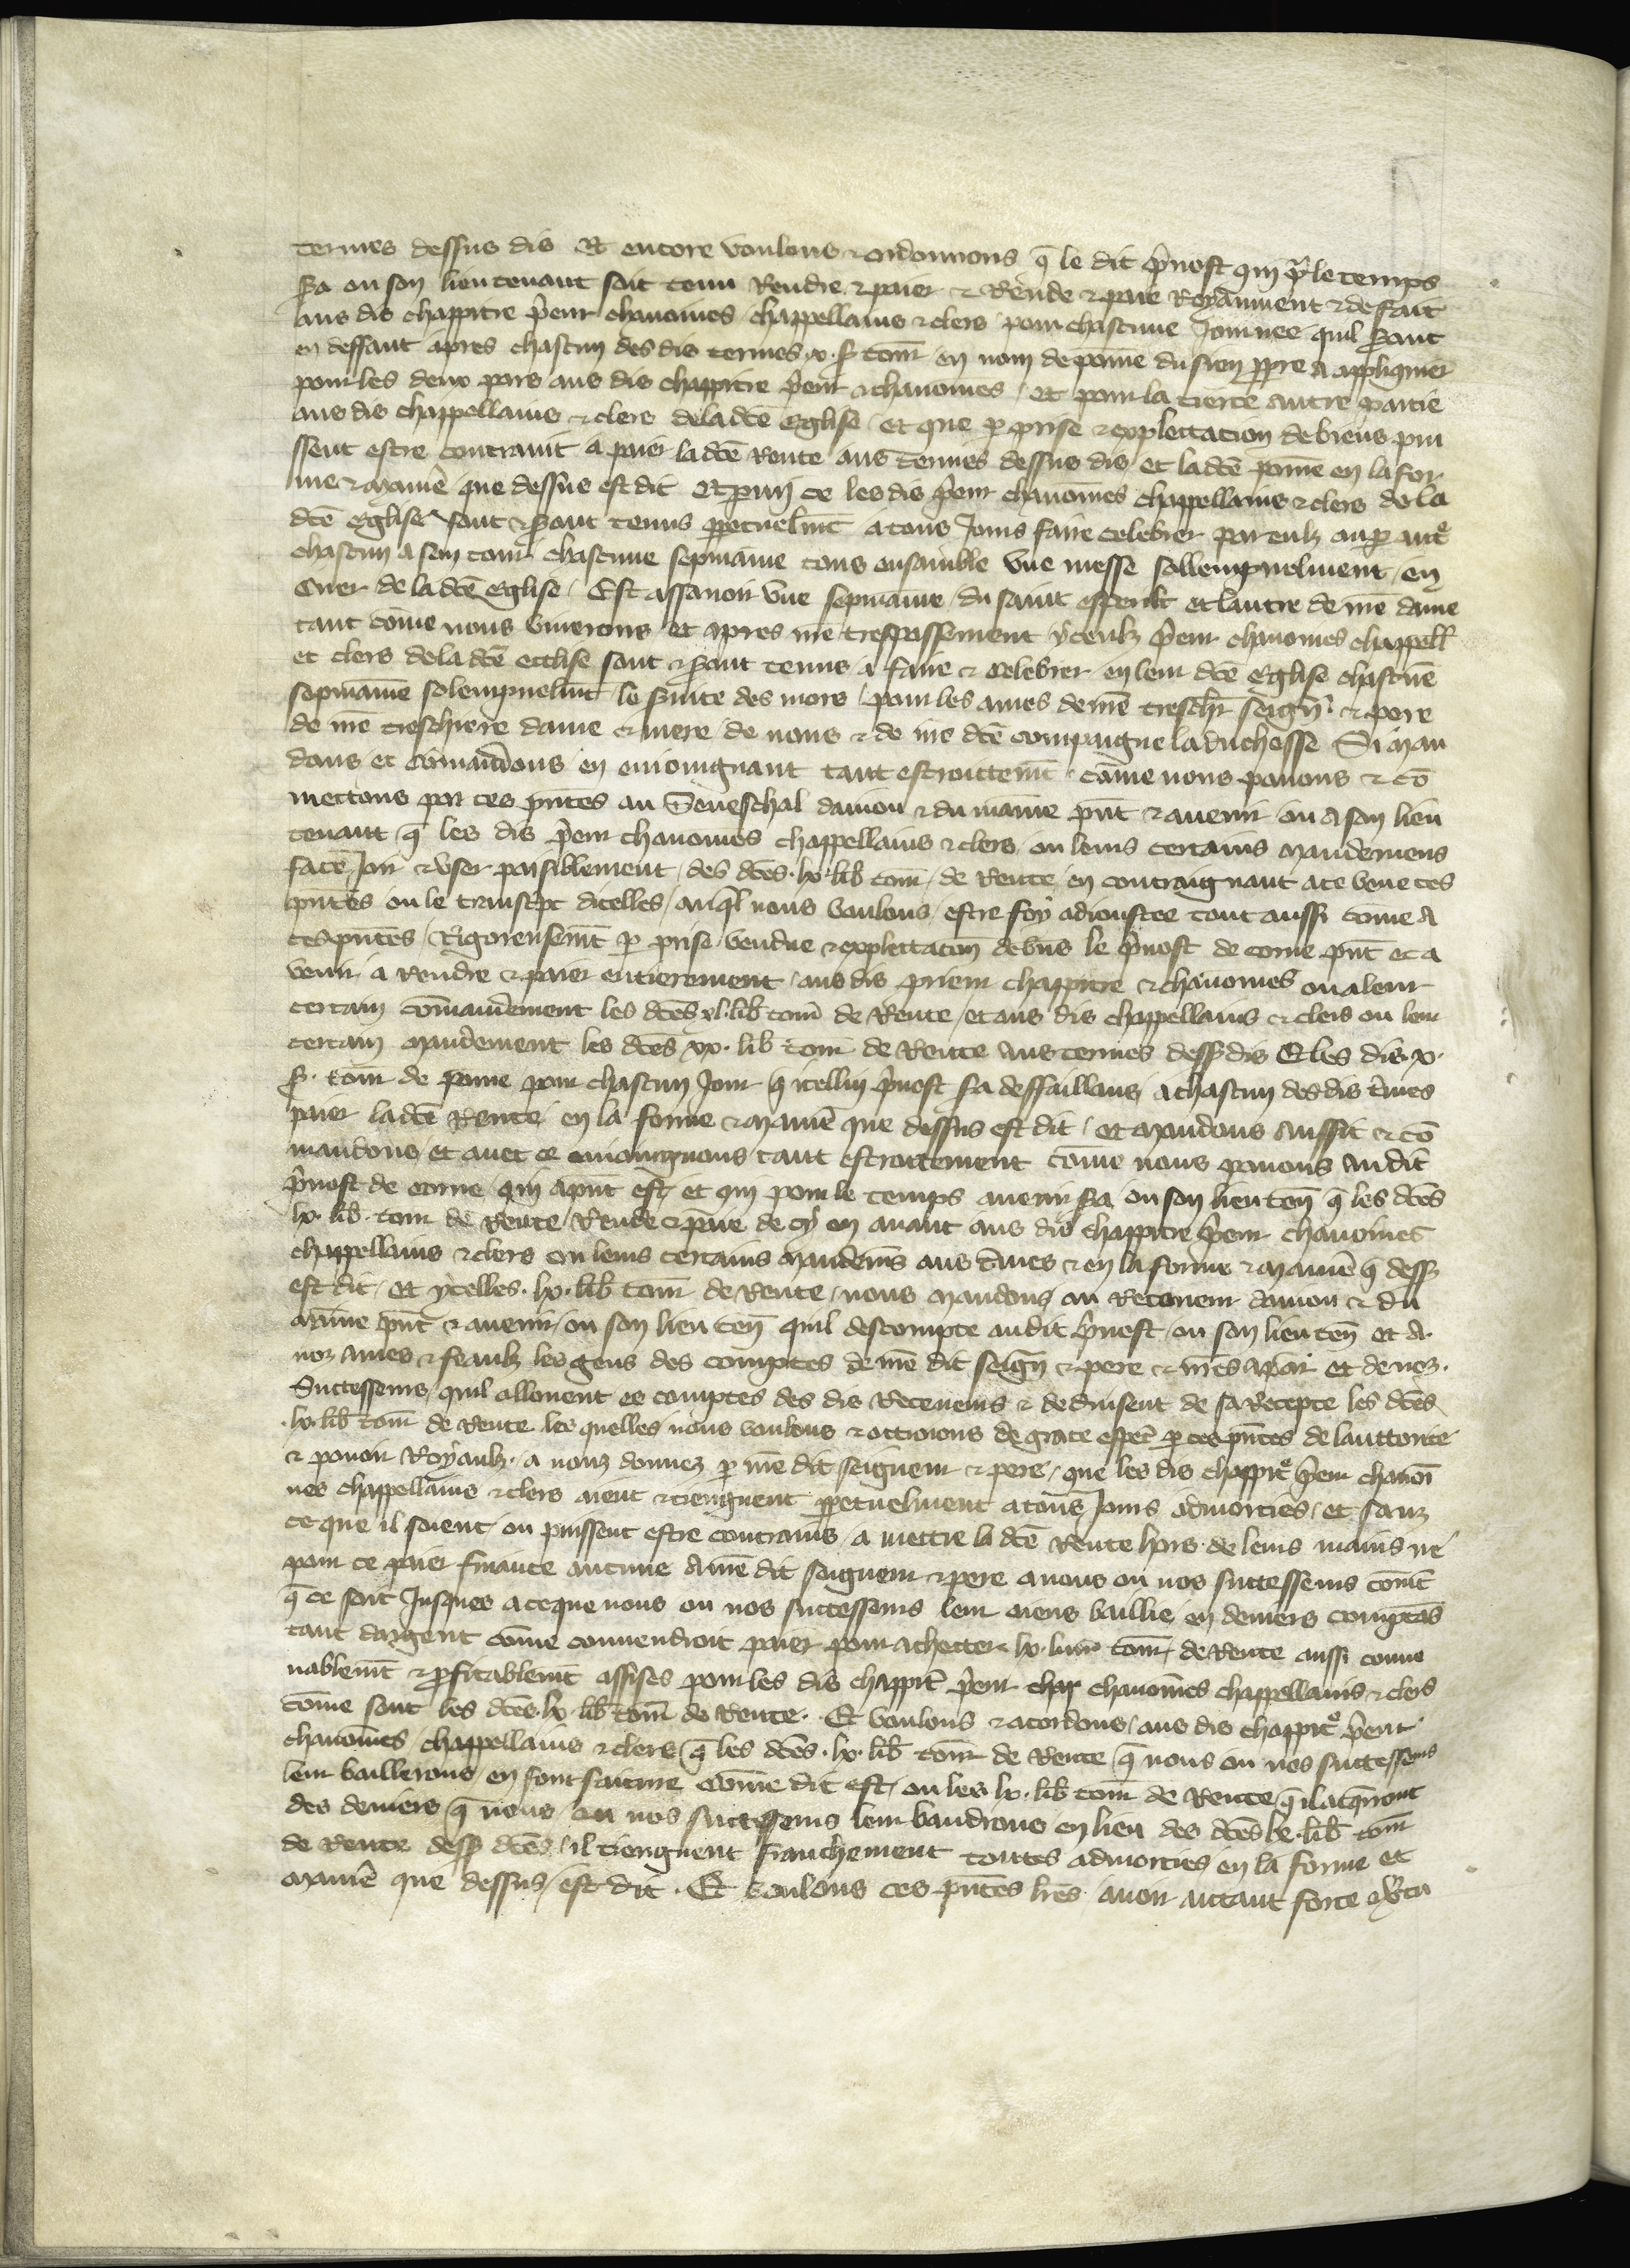 termes dessus dis Et encore voulons & ordonnons q̄ le dit p̄uost qui pr̄ le temps
sera ou son lieutenant soit tenu Rendre & paier & Rende & paie Royaument & de fait
aus dis chappitre p̄eur chanoines chappellains & clers pour chascune Journee quil seront
en deffaut apres chascun des dis termes .x. s̄ tourn̄ en nom de poine du sien ppre A appliquier
pour les deux pars aus dis chappitre p̄eur & chanoines / Et pour la tierce autre partie
aus dis chappellains & clers de la dc̄e Eglise / et que p prise & explettacion de biens puı
ssent estre contraint a paier la dc̄e Rente aus termes dessus dis et la dc̄e poine en la for
me & maniē que dessus est dit Et pmi ce les dis p̄eur chanoines chappellains & clers de la
dc̄e Eglise sont & seront tenus ppetuelm̄t a tous Jours faire celebrer par eulx ou p autr̄e
chascun a son tour chascune sepmaine tous ensamble vne messe sollempnelment / en
Cuer de la dc̄e eglise / Est assauoir vne sepmaine du saint esperit et lautre de nr̄e dame
tant cōme nous viuerons et apres nr̄e trespassement yceulx p̄eur chanoines chappell̄
et clers de la dc̄e ecclise sont & seront tenus a faire & celebrer en leur dc̄e Eglise chascūe
sepmaine solempnelm̄t le seruice des mors pour les ames de nr̄e treschr̄ seign̄ & pere
de nr̄e treschiere dame & mere de nous & de nr̄e dc̄e compaigne la duchesse Si man
dons et cōmandons en enioingnant tant estroittem̄t cōme nous pouons & cō
mettons par ces p̄ntes au Seneschal daniou & du maine p̄nt & auenir ou A son lieu
tenant q̄ les dis p̄eur chanoines chappellains & clers ou leurs certains mandemens
face Joir & vser paisiblement / des dc̄es .lx. lib̄ tourn̄ de Rente en contraignant a ce veue ces
p̄ntes ou le transcpt dicelles / auq̄l nous voulons estre foy adioustee tout aussi cōme A
ces p̄ntes / Rigoreusem̄t p prise vendue & explettacōn de bn̄s le p̄uost de cōme p̄nt et a
venir a Rendre & paier entierement / aus dis prieur chappitre & chanoines ou a leur
certain cōmandement les dc̄es xl. lib̄ tourn̄ de Rente / et aus dis chappellains & clers ou leur
certain mandement les dc̄es xx. lib tourn̄ de Rente Aus termes dess dis Et les dis .x.
s̄. tourn̄ de poine pour chascun Jour q̄ icellui p̄uost sa deffaillans / a chascun des dis t̄mes
paier la dc̄e Rente / en la forme & maniē que dessus est dit / et mandons Aussit & cō
mandons / et auec ce enioingnons tant estroittement cōme nous pouons Au dit
p̄uost de come / qui apnt est / et qui pour le temps auenir sera ou son lieuten̄ q̄ les dc̄es
lx. lib̄. tourn̄ de Rente Rende & paie de cy en auant aus dis chappitre p̄eur chanoines
chappellains & clers ou leurs certains mandem̄s aus t̄mes & en la forme & maniē q̄ dess
est dit / Et ycelles .lx. lib̄ tourn̄ de Rente / nous mandons au Receueur daniou & du
maine p̄nt & auenir / ou son lieuten̄ quil descompte au dit p̄uost / ou son lieuten̄ et A
noz Ames & feaulx les gens des comptes de nr̄e dit seign̄ & pere & nr̄es apar et de noz
Successeurs / quil allouent es comptes des dis Receueurs & deduisent de sa Recepte les dc̄es
.lx. lib̄ tourn̄ de Rente les quelles nous voulons & ottroions de grace espēc̄ p ces p̄ntes de lauttorite
& pouoir Royaulx / a nouz donnez p nr̄e dit seigneur & pere / que les dis chappitr̄e p̄eur chanoi
nes chappellains & clers aient & tiengnent ppetuelment a tous Jours admorties / et sanz
ce que il soient ou puissent estre contrains / a mettre la dc̄e Rente hors de leurs mains ne
pour ce paier finance aucune A nr̄e dit seigneur & pere a nous ou nos successeurs com̄t
q̄ ce soit Jusques a ce que nous ou nos successeurs leur aiens baillie en deniers comptās
tant dargent cōme conuendroit paier pour Achetter .lx. liur̄ tourn̄ de Rente aussi conue
nablem̄t & pfitablem̄t assises pour les dis chappitr̄ p̄eur char chanoines chappellains & clers
cōme sont les dc̄es .lx. lib̄ tourn̄ de Rente. Et voulons & acordons / aus dis chappitr̄e p̄eur
chanoines / chappellains & clers q̄ les dc̄es .lx. lib̄ tourn̄ de Rente q̄ nous ou nos successeurs
leur baillerons / en font faiture cōme dit est / ou les lx. lib̄ tourn̄ de Rente q̄ il acq̄rront
des deniers q̄ nous / ou nos successeurs leur baudrons en lieu des dc̄es lx. lib̄ tourn̄
de Rente dess dc̄es / il tiengnent franchement toutes admorties en la forme et
maniē que dessus / est dit. Et voulons ces p̄ntes lr̄es auoir autant force & vertu